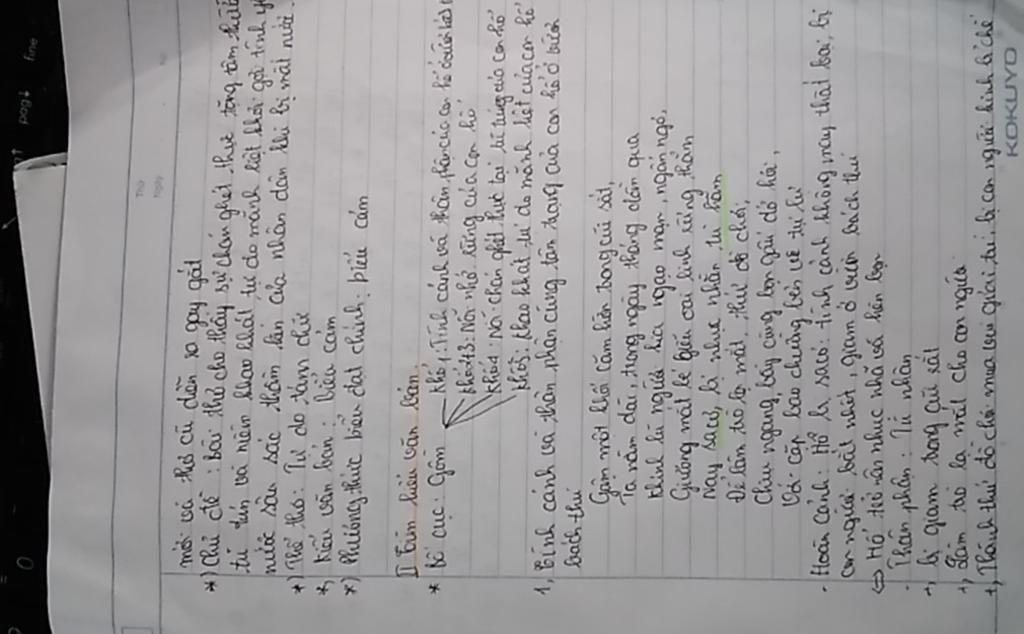 mới và thơ cũ diễn ra gay gắt
*) Chủ đề: bài thơ cho thấy sự chán ghét thực tại
tù túng và niềm khao khát tự do mãnh liệt khơi gợi tình yêu
nước sâu sắc thầm kín của nhân dân khi bị mất nước
*) Thể thơ: Tự do tám chữ
*) Kiểu văn bản: biểu cảm
*) Phương thức biểu đạt chính: biểu cảm
II Tìm hiểu văn bản.
* Bố cục: Gồm
Khổ 1: Tình cảnh và thân phận của con hổ ở vườn bách
Khổ 2+3: Nỗi nhớ rừng của con hổ
Khổ 4: Nỗi chán ghét thực tại tù túng của con hổ
Khổ 5: Khao khát tự do mãnh liệt của con hổ
1, Tình cảnh và thân phận cùng tâm trạng của con hổ ở vườn
bách thú
Gậm một khối căm hờn trong cũi sắt,
Ta nằm dài, trông ngày tháng dần qua
Khinh lũ người kia ngạo mạn, ngẩn ngơ,
Giương mắt bé giễu oai linh rừng thẳm
Nay sa cơ, bị nhục nhằn tù hãm
Để làm trò lạ mắt, thứ đồ chơi,
Chịu ngang bầy cùng bọn gấu dở hơi,
Với cặp báo chuồng bên vô tư lự
- Hoàn cảnh: Hổ bị sa cơ: tình cảnh không may thất bại, bị
con người bắt nhốt, giam ở vườn bách thú
⇔ Hổ trở nên nhục nhã và hèn hạ
- Thân phận: Tù nhân
+, bị giam trong cũi sắt
+, Làm trò lạ mắt cho con người
+, Thành thứ đồ chơi mua vui giải trí bị con người khinh bỉ chế
Thứ
Ngày
No
KOKUYO
pag↓
fine
0